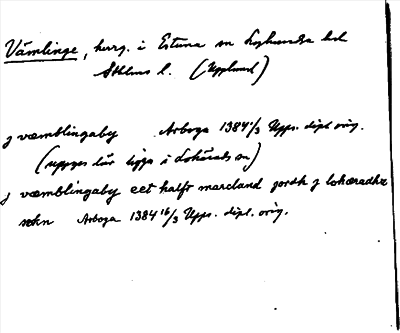 Vämlinge, herrg. i Estuna sn Lyhundra hd
Sthlms l. (Uppland)
j væmblingaby Arboga 1384 1/3 Upps. dipl orig.
(uppges där ligga i Lohärads sn)
j væmblingaby eet halft marcland jordh j lohæradhe
sokn Arboga 1384 16/3 Upps. dipl. orig.